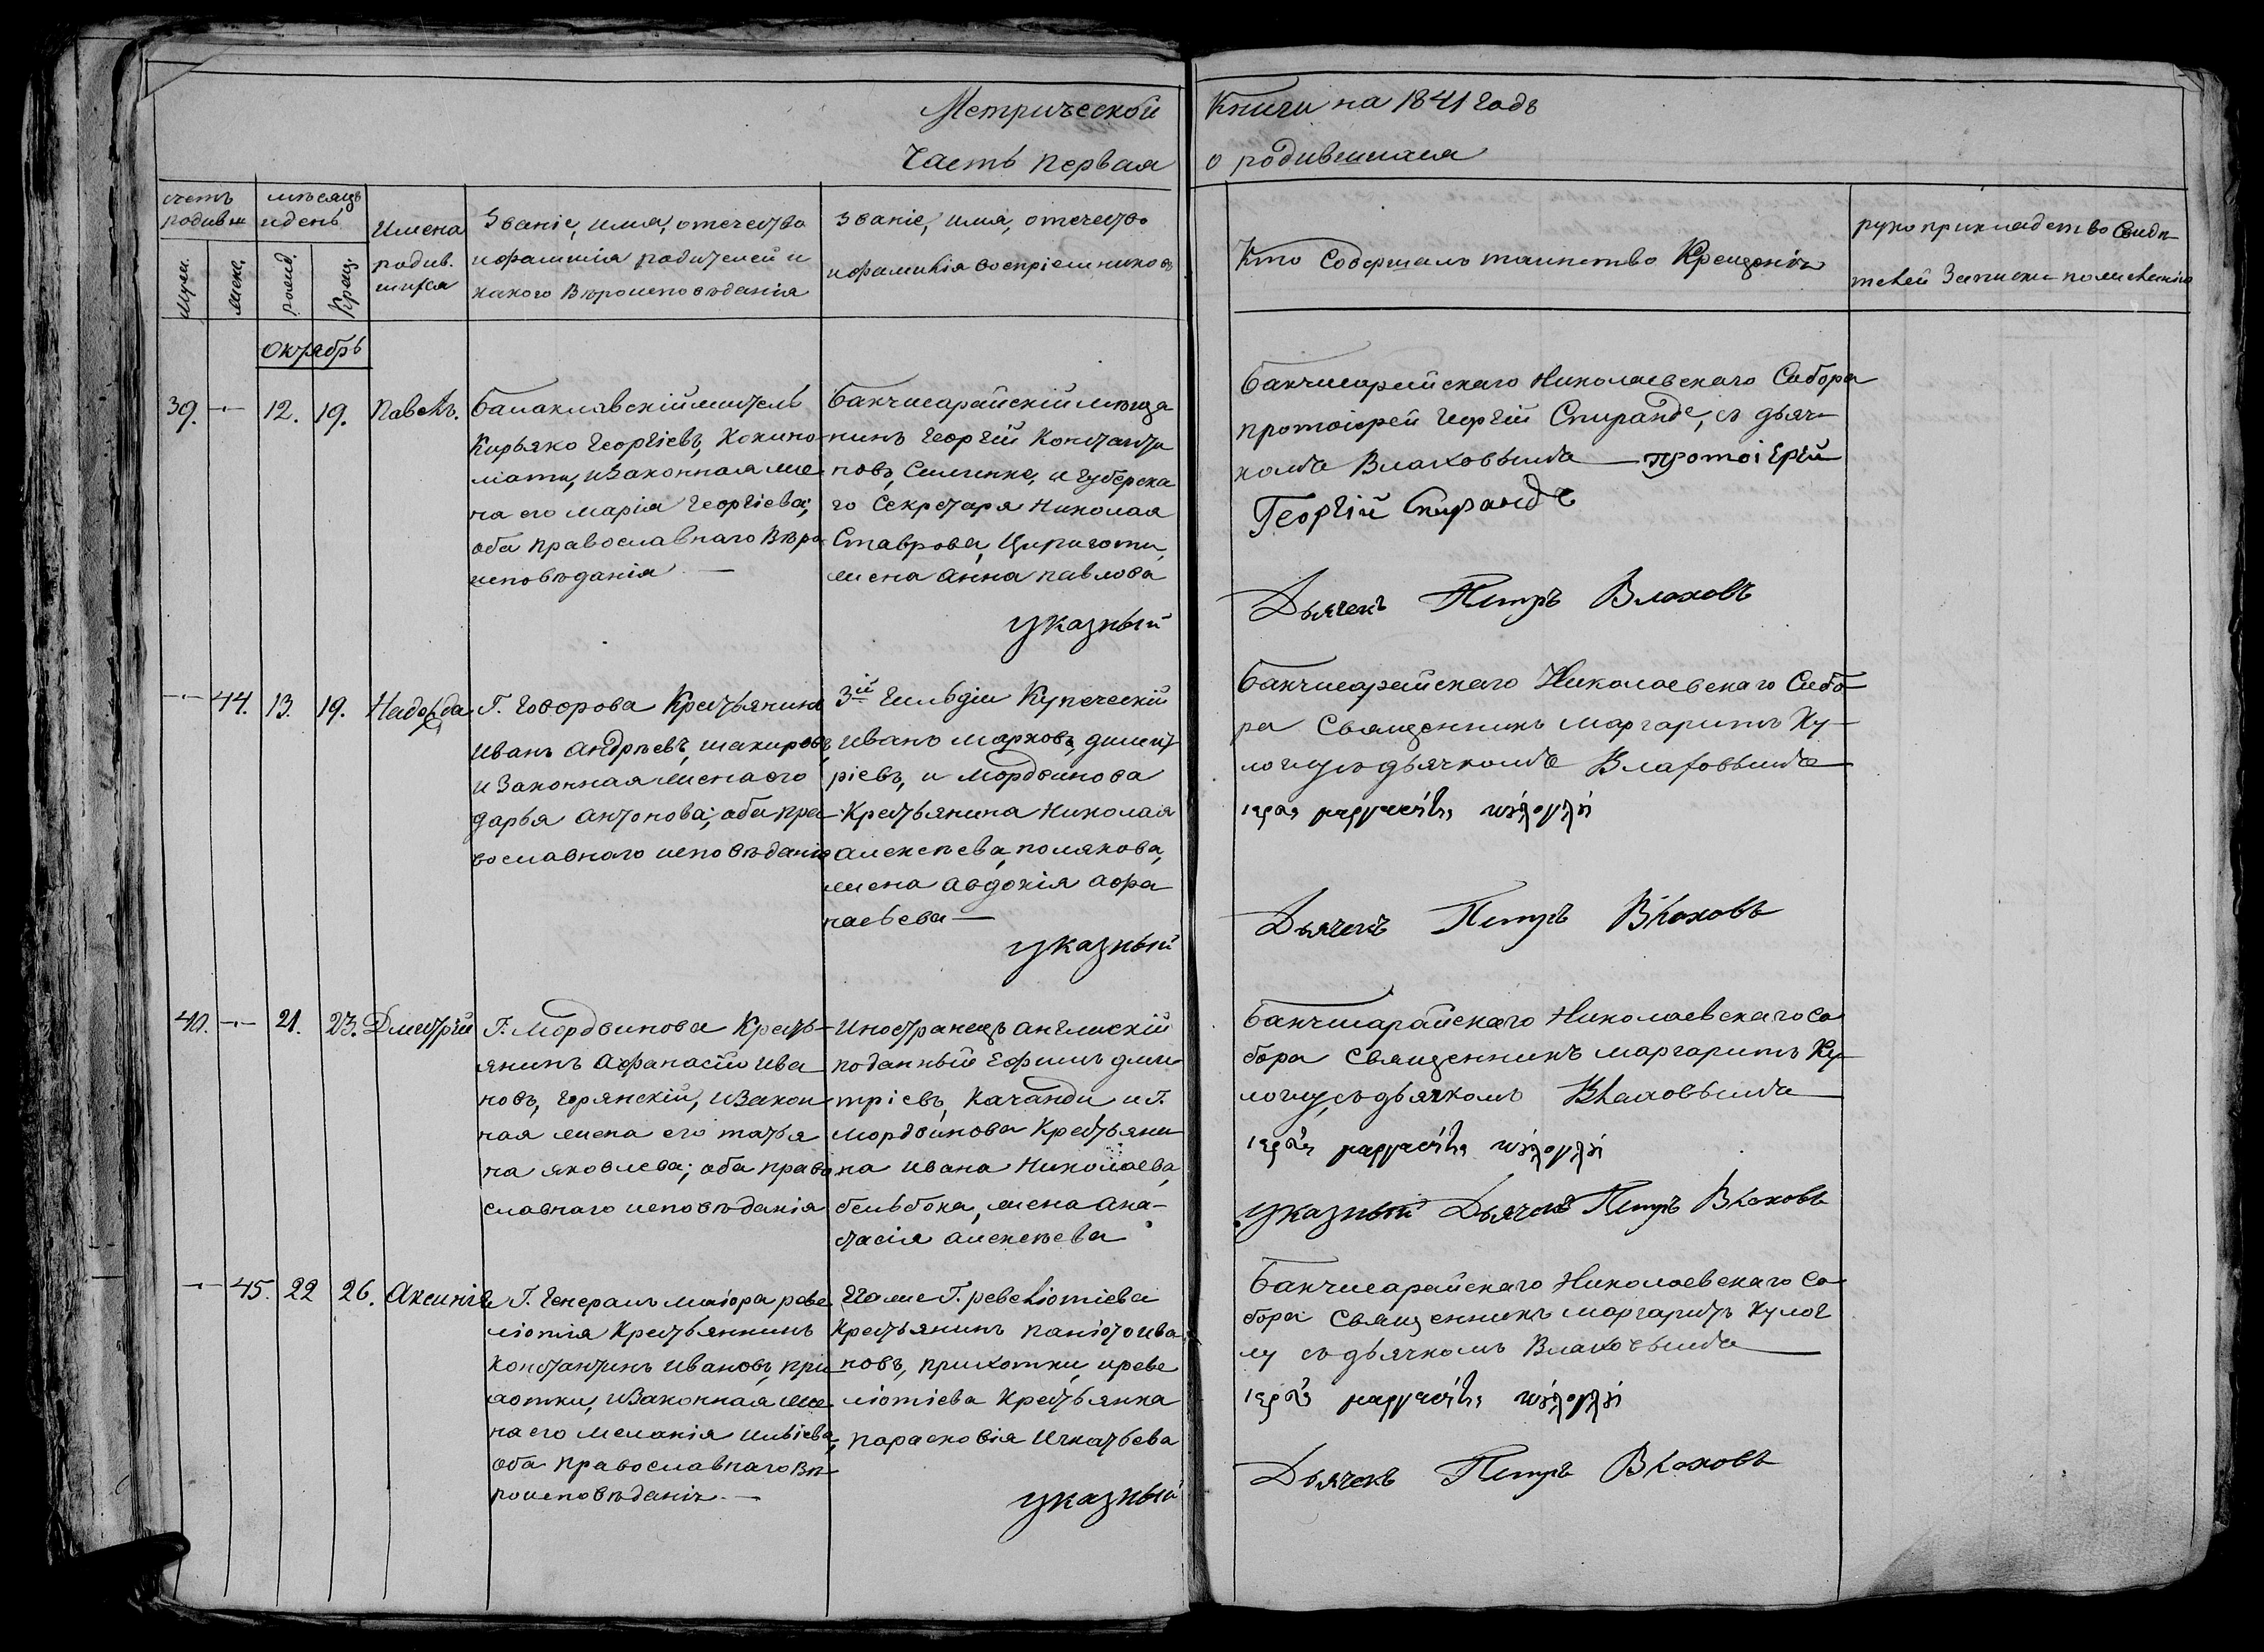 Метрической
Часть первая
Книги на 1841 годъ
о родившихся
счетъ
родивш
мѣсяцъ
и день
Имена
родив.
шихся
Званіе, имя, отечество
и фамилія родителей и
какого Вѣроисповѣданія
Званіе, имя, отечество
и фамилія воспріемниковъ
Кто Совершалъ таинство Крещенія
рукоприкладство Свидѣ
телей Записки по желанію
муж.
жен.
рожд.
Крещ.
Октябрь
39.
12. 19.
Павелъ.
Балаклавскій житель
Кирьяко Георгіевъ, Кокино
мати, и Законная же
на его Марія Георгіева;
оба Православнаго Вѣро
исповѣданія —
Бахчисарайскій мѣща
нинъ Георгій Константи
новъ, и Губернска
го Секретаря Николая
Ставрова, Цириготи,
жена Анна Павлова
указный
Бахчисарайскаго Николаевскаго Собора
протоіерей Георгій Спиранде, съ дьяч
комъ Влаховымъ — протоіерей
Георгій Спиранде
Дьячекъ Петръ Влаховъ
44. 13. 19.
Надежда
Г. Говорова Крестьянинъ
Иванъ Андрѣевъ, Шакировъ,
и Законная жена его
Дарья Антонова; оба пра
вославнаго исповѣданія
3й Гильдіи Купеческій
Иванъ Марковъ, Димит
ріевъ, и Мордвинова
Крестьянина Николая
Алексѣева, Полякова,
жена Авдокія Афа
насьева —
указный
Бахчисарайскаго Николаевскаго Собо
ра Священникъ Маргаритъ Ку
логлу съ дьячкомъ Влаховымъ
Дьячекъ Петръ Влаховъ
40.
21. 23.
Дмитрій
Г. Мордвинова Кресть
янинъ Афанасій Ива
новъ, Горянскій, и Закон
ная жена его Татья
на Яковлева; оба право
славнаго исповѣданія
Иностранецъ Англискій
поданный Ефимъ Дми
тріевъ, Качанди и Г.
Мордвинова Крестьяни
на Ивана Николаева,
Бельбока, жена Ана
стасія Алексѣева
Бахчисарайскаго Николаевскаго Со
бора Священникъ Маргаритъ Ку
логлу, съ дьячкомъ Влаховымъ
указный Дьячекъ Петръ Влаховъ
45. 22 26.
Аксинія
Г. Генералъ Маіора Реве
ліотія Крестьянинъ
Константинъ Ивановъ, При
хотки, и Законная же
на его Меланія Ильіева,
оба Православнаго Вѣ
роисповѣданія —
Того же Г. Ревеліотіева
Крестьянинъ Паніото Ива
новъ, Прихотки, и Реве
ліотіева Крестьянка
Парасковія Игнатьева
указный
Бахчисарайскаго Николаевскаго Со
бора Священникъ Маргаритъ Кулог
лу съ дьячкомъ Влаховымъ
Дьячекъ Петръ Влаховъ